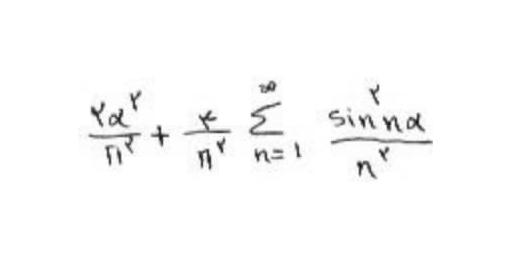 $\frac{۲\alpha^{۲}}{\pi^{۲}} + \frac{۴}{\pi^{۲}} \sum_{n=1}^{\infty} \frac{\sin^{۲} n\alpha}{n^{۲}}$